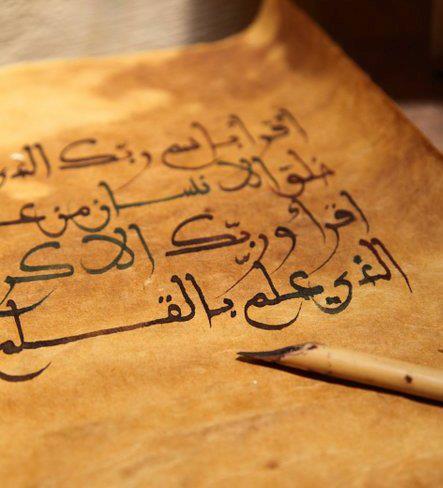 اقرأ باسم ربك الذ
خلق الانسان من عـ
اقرأ وربّك الاكر
الذي علم بالقلم